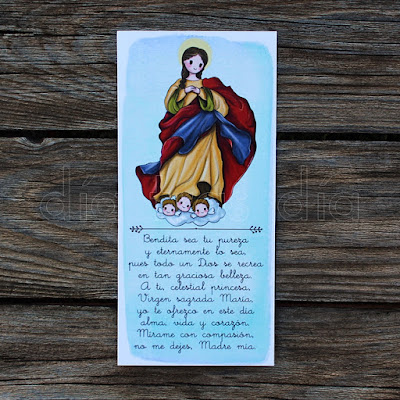 Bendita sea tu pureza
y eternamente lo sea,
pues todo un Dios se recrea
en tan graciosa belleza.
A ti, celestial princesa,
Virgen sagrada María,
yo te ofrezco en este día
alma, vida y corazón.
Mírame con compasión,
no me dejes, Madre mía.